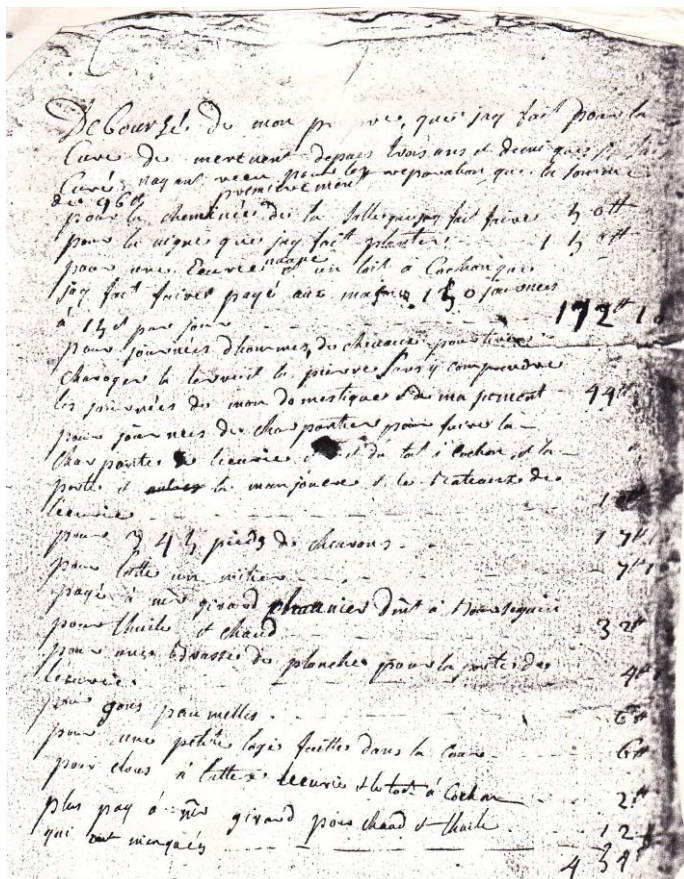 Debourzé de mon propre, que jay fait pour la
Cure de mervent depuis trois ans et demi que je suis
Curé nayant receu pour les reparation que la somme
de 96tt premierement
pour la cheminée de la salle que jay fait faire 50tt
pour la vigne que jay fait planter 15tt
pour une Ecurie et un toit à Cochon que
jay fait faire payé aux masons 150 journées
à par jour 172tt
pour journées dhommes, de chevaux pour tirer
charoyer la terre et la pierre sans y comprendre
les journées de mon domestique et de ma jument 44tt
pour journées de charpantier pour faire la
charpante de lecurie et du toit à Cochon, et la
porte et la manjouere et les rateaux de
lecurie
pour 345 pieds de chevrons 17tt
pour latte un milier 7tt
payé à mr girard
pour thuile et chaud 32tt
pour onze brasse de planche pour la porte de
lecurie 4tt
pour gons paumelles 6tt
pour une petite loge faitte dans la Cour 6tt
pour clous a latte lecurie et le toit à Cochon 2tt
plus payé à mr girard pour chaud et thuile
qui ont manqués 12
434tt